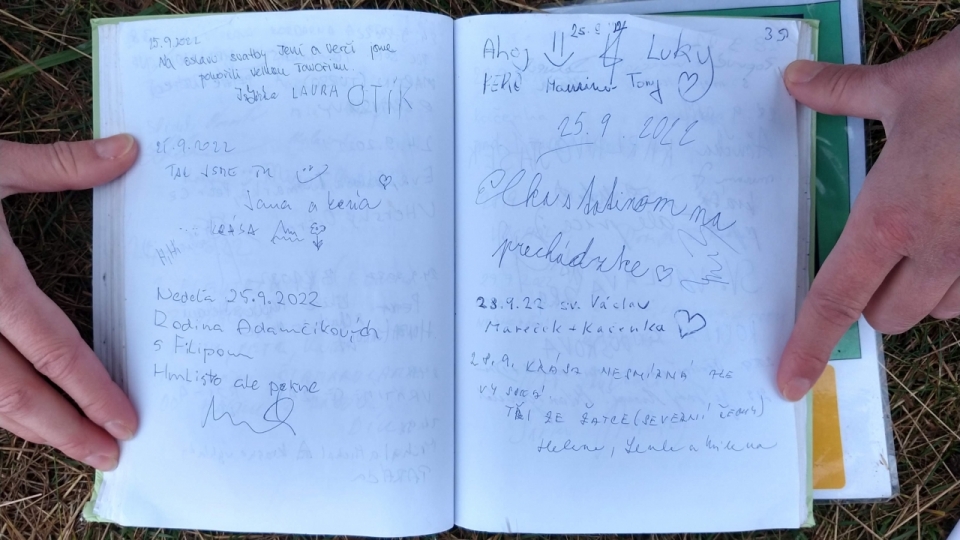 25.9.2022
Na oslavě svatby Jení a Verči jsme
pokořili Velkou Javořinu.
LAURA OTÍK
25.9.2022
TAK JSME TU
Jana a
KRÁSA
HIHI
Nedeľa 25.9.2022
Rodina Adamčíkových
s Filipom
Hmlisto ale pekne
39
25.9.
Ahoj Luky
Mamina Tony
25.9.2022
Elka s tatinom na
prechádzke
28.9.22 sv. Václav
Mareček + Kačenka
28.9. KRÁSA NESMÍRNÁ ALE
VYSOKÁ
TŘI ZE ŽATCE (SEVERNÍ ČECHY)
Helena, a Milena